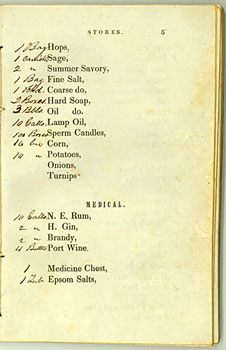 STORES. 5
1 Bag Hops,
1 Sage,
2 " Summer Savory,
1 Bag Fine Salt,
1 Coarse do,
2 Boxes Hard Soap,
3 Bbls Oil do.
10 Galls. Lamp Oil,
100 Boxes Sperm Candles,
16 Corn,
10 " Potatoes,
Onions,
Turnips
MEDICAL.
10 Galls N. E. Rum,
2 " H. Gin,
2 " Brandy,
4 Bottls Port Wine.
1 Medicine Chest,
1 Epsom Salts,